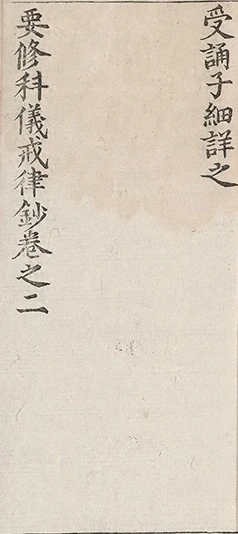 受誦子細詳之
要修科儀戒律鈔卷之二